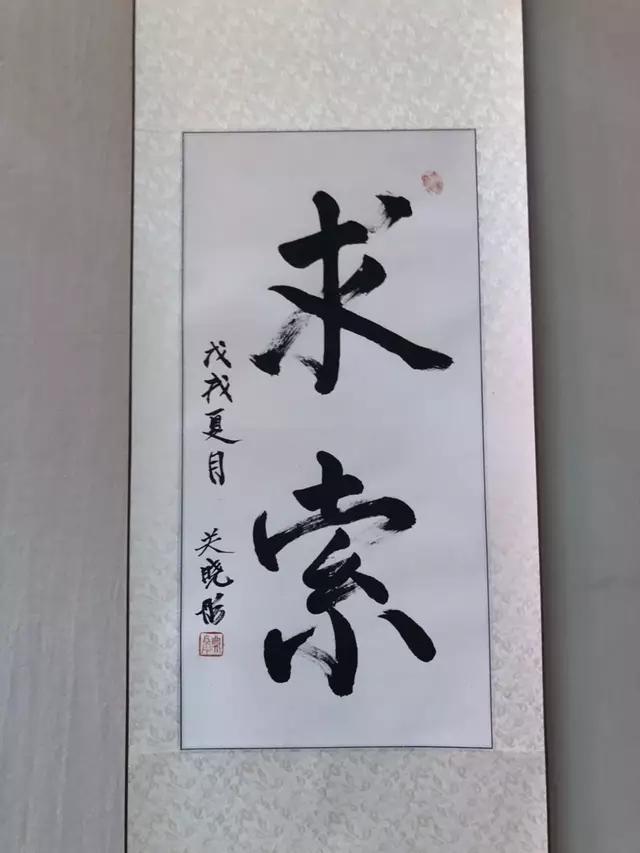 求索
戊戌夏月 关晓彤